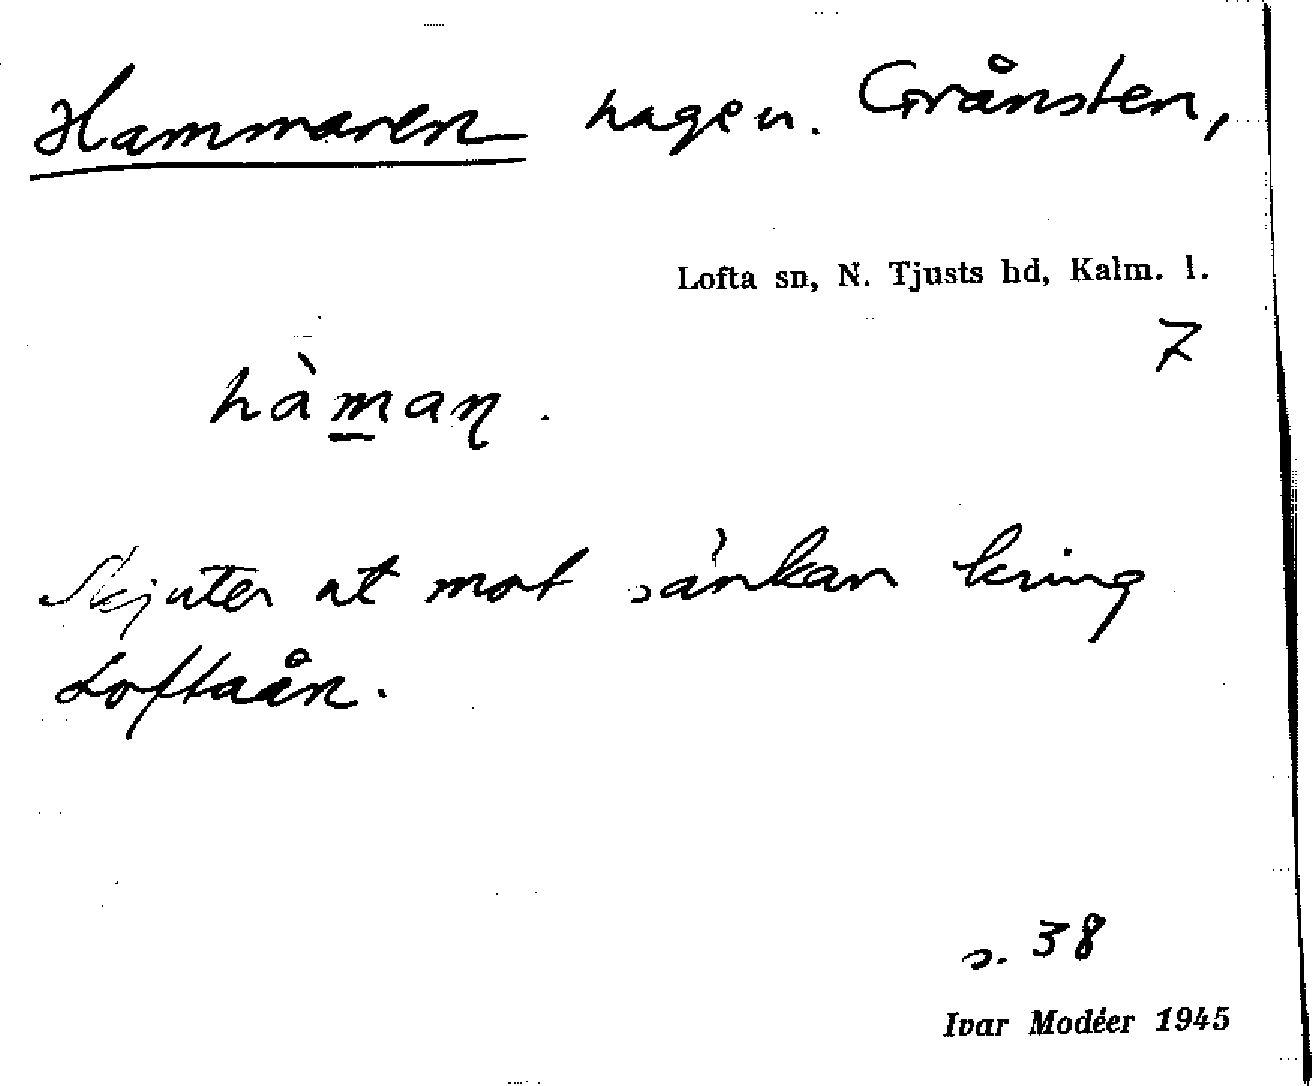 Hammaren hagen. Grånsten,
Lofta sn, N. Tjusts hd, Kalm. l.
7
hàmaṇ.
Skjuter ut mot sänkan kring
Loftaån.
s. 38
Ivar Modéer 1945